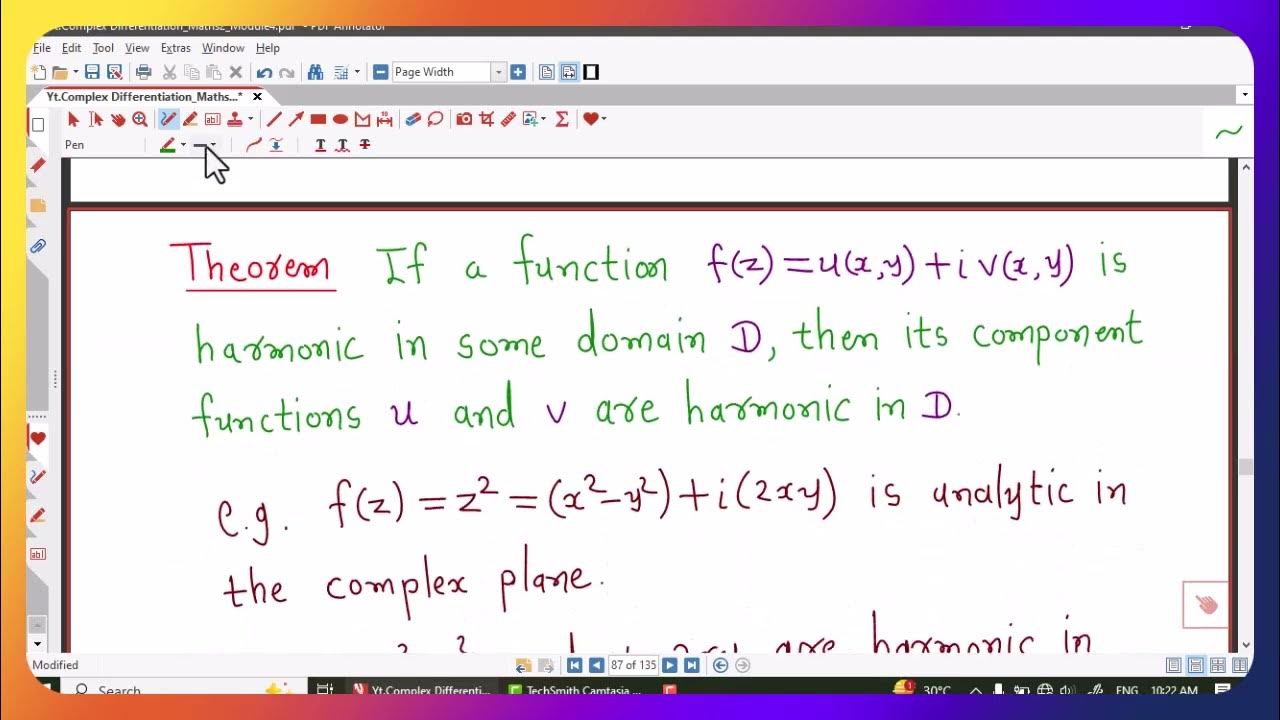 Yt.Complex Differentiation_Maths2_Module4.pdf * - PDF Annotator
File Edit Tool View Extras Window Help
Page Width
Yt.Complex Differentiation_Maths...*
Pen
Theorem If a function f(z) = u(x,y) + i v(x,y) is
harmonic in some domain D, then its component
functions u and v are harmonic in D.
e.g. f(z) = z² = (x²-y²) + i(2xy) is analytic in
the complex plane.
are harmonic in
Modified 87 of 135
Search Yt.Complex Differenti... TechSmith Camtasia ... 30°C ENG 10:22 AM